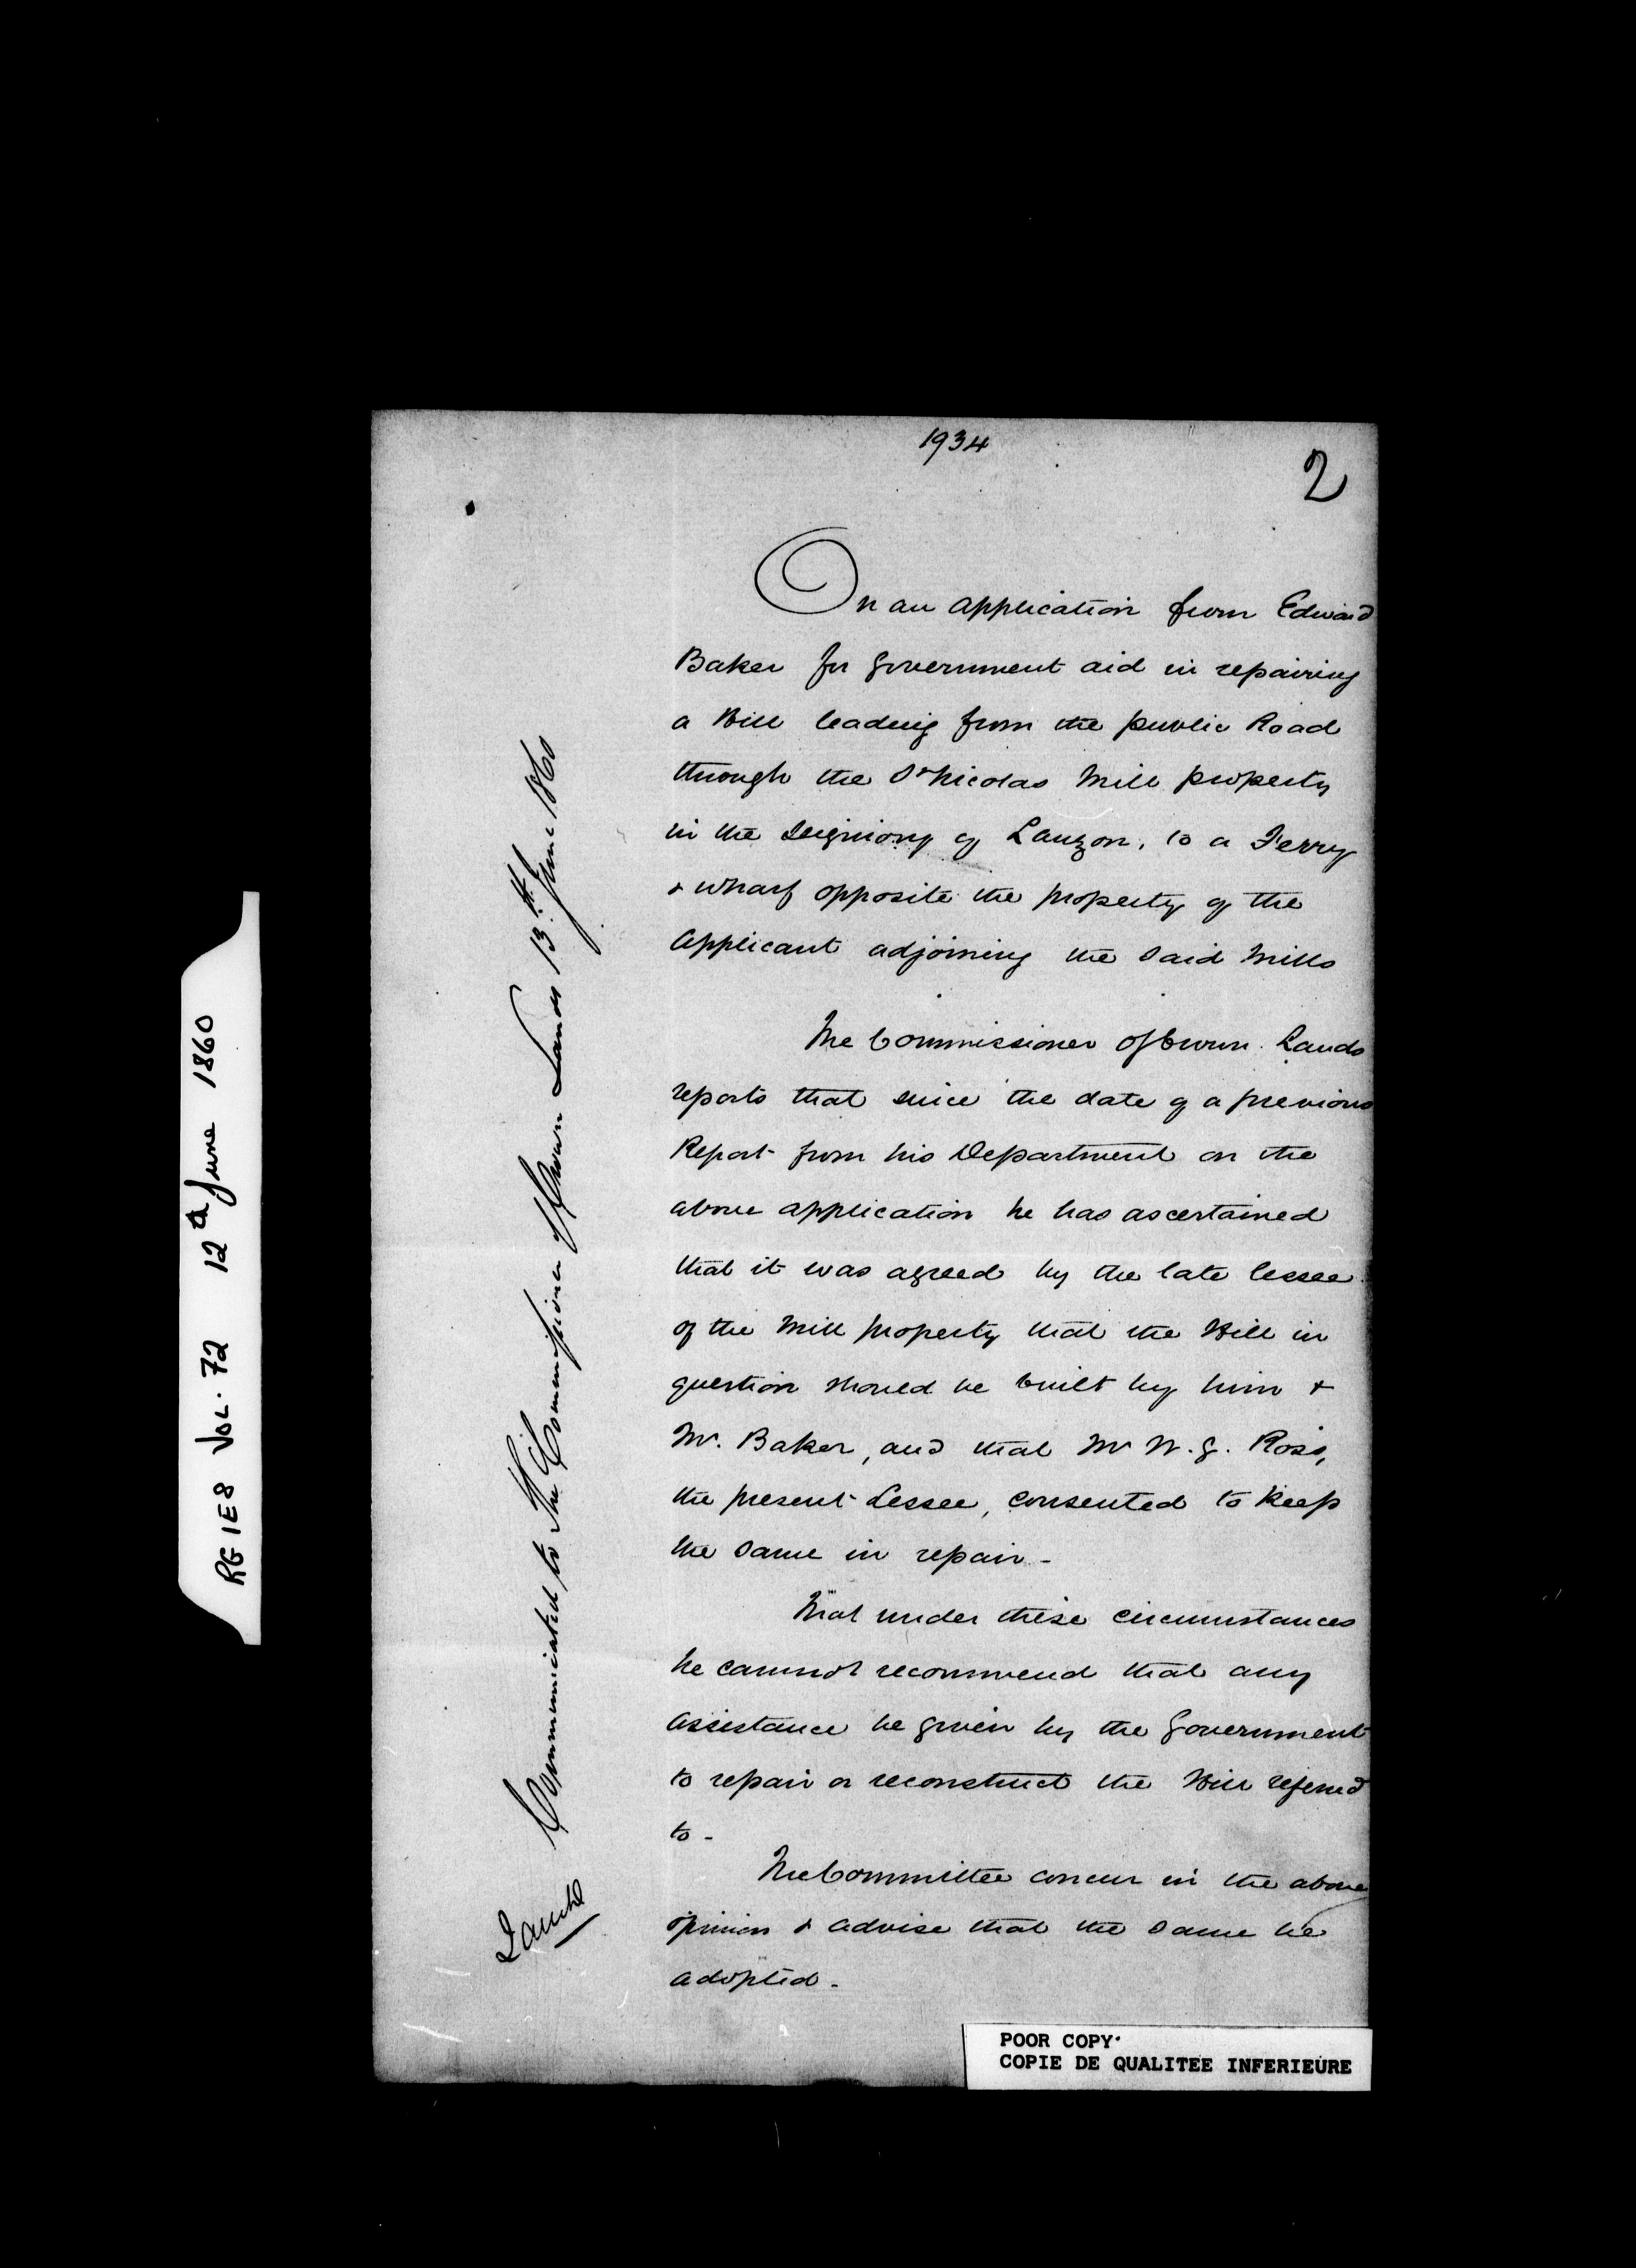 1934
2
On an application from Edward
Baker for Government aid in repairing
a Hill leading from the public Road
through the St Nicolas Mill property
in the Seigniory of Lauzon, to a Ferry
& Wharf opposite the property of the
Applicant adjoining the said Mills
The Commissioner of Crown Lands
reports that since the date of a previous
Report from his Department on the
above application he has ascertained
that it was agreed by the late lessee
of the Mill property that the Hill in
question should be built by him &
Mr. Baker, and that Mr W. G. Ross,
the present Lessee, consented to keep
the same in repair -
That under these circumstances
he cannot recommend that any
assistance be given by the Government
to repair or reconstruct the Hill referred
to -
The Committee concur in the above
opinion & advise that the same be
adopted -
Communicated to The Commissioner of Crown Lands 13th June 1860
RG 1 E8 VOL. 72 12th June 1860
POOR COPY
COPIE DE QUALITEE INFERIEURE